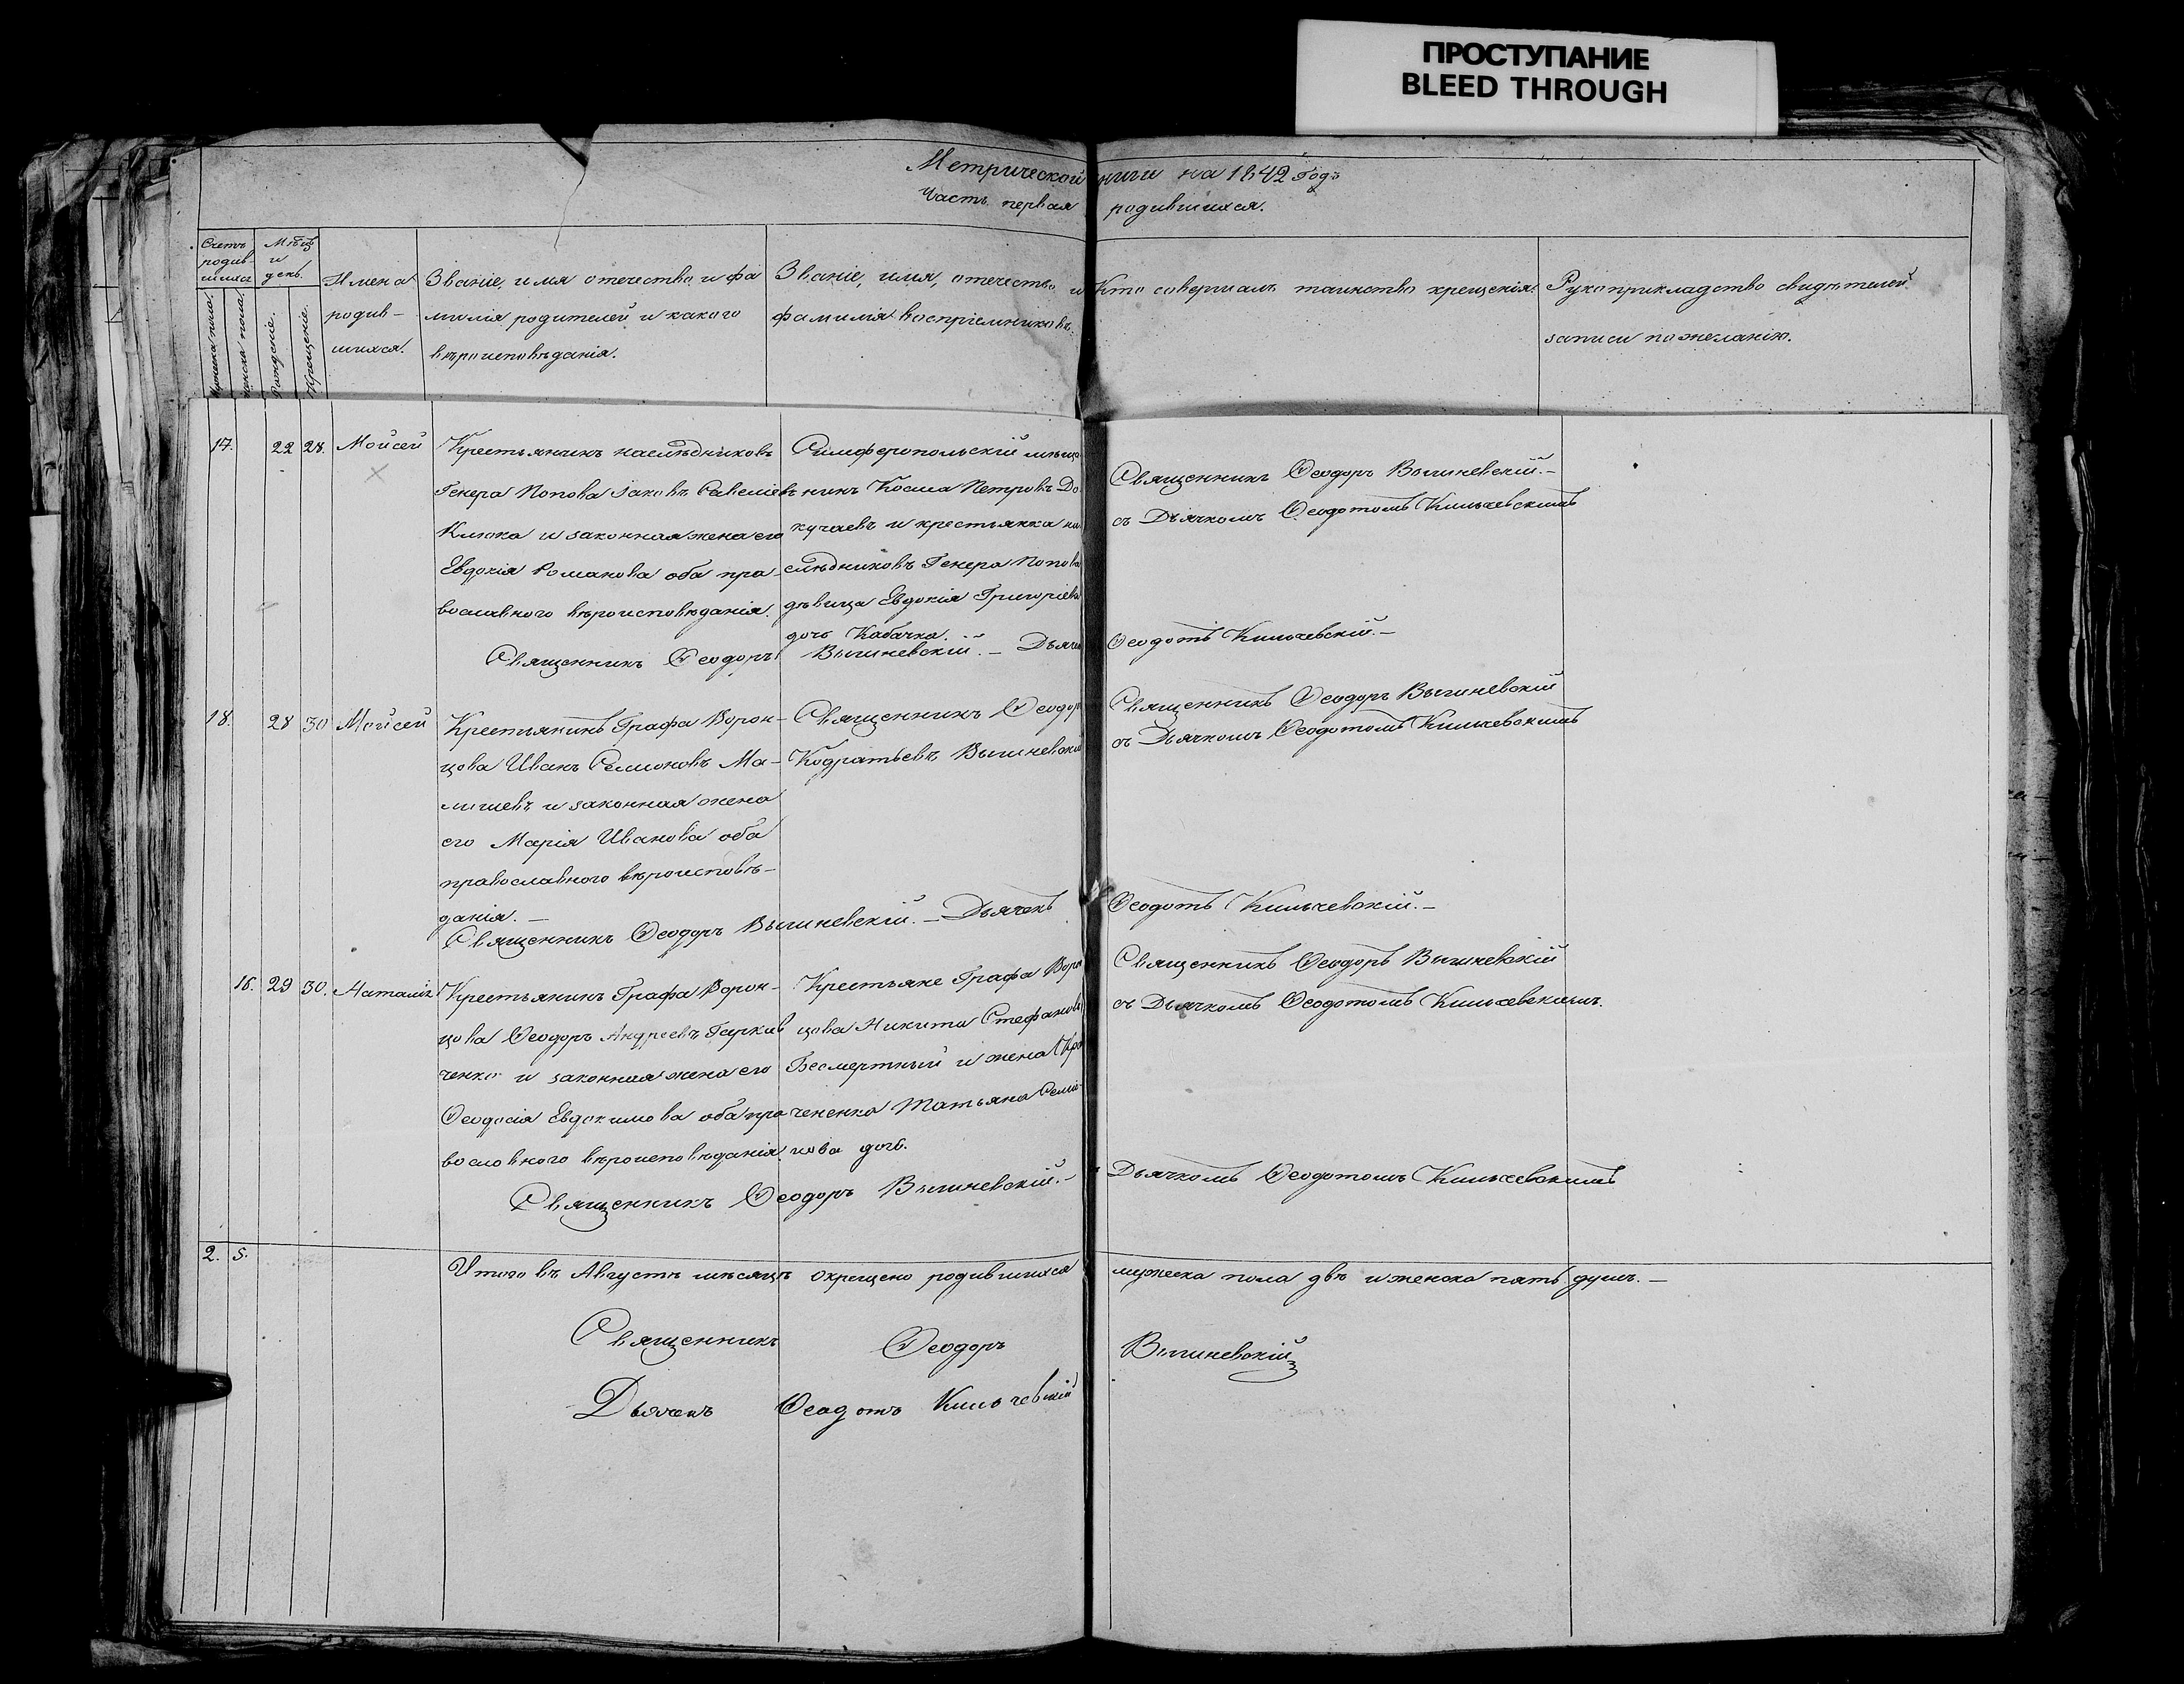 ПРОСТУПАНИЕ
BLEED THROUGH
Метрической книги на 1842 Годъ
Часть первая родившихся.
Счетъ родив-шихся
Мужеска пола.
Женска пола.
Мѣцъ и день.
Рожденіе.
Крещеніе.
Имена родив-шихся.
Званіе, имя отечество, и фа
милія родителей и какого
вѣроисповѣданія.
Званіе, имя, отечество и
фамилія воспріемниковъ.
Кто совершалъ таинство крещенія.
Рукоприкладство свидѣтелей
записи по желанію.
17. 22 28. Мойсей
Крестьянинъ наслѣдниковъ
Генера Попова Іаковъ Савеліевъ
Клюка и законная жена его
Евдокія Романова оба пра-
вославного вѣроисповѣданія.
Симферопольскій мѣща
нинъ Косма Петровъ До
кучаевъ и крестьянка на
слѣдниковъ Генера Попова
дѣвица Евдокія Григоріева
дочь Кабачка.
Священникъ Ѳеодоръ Вышневскій.-
съ Дьячкомъ Ѳеодотомъ Кильчевскимъ
Священникъ Ѳеодоръ Вышневскій. - Дьячекъ Ѳеодотъ Кильчевскій.-
18. 28 30 Мойсей
Крестьянинъ Графа Ворон-
цова Иванъ Семионовъ Ма-
лишевъ и законная жена
его Марія Иванова оба
православного вѣроисповѣ-
данія. -
Священникъ Ѳеодоръ
Кодратьевъ Вышневскій
Священникъ Ѳеодоръ Вышневскій
съ Дьячкомъ Ѳеодотомъ Кильчевскимъ
Священникъ Ѳеодоръ Вышневскій. - Дьячекъ Ѳеодотъ Кильчевскій.-
16. 29 30. Наталія
Крестьянинъ Графа Ворон-
цова Ѳеодоръ Андреевъ Гаркав
ченко и законная жена его
Ѳеодосія Евдокимова оба пра
вославного вѣроисповѣданія.
Крестьяне Графа Ворон
цова Никита Стефановъ
Бесмертный и жена Кра
чененка Татьяна Семіо-
нова дочь.
Священникъ Ѳеодоръ Вышневскій
съ Дьячкомъ Ѳеодотомъ Кильчевскимъ.
Священникъ Ѳеодоръ Вышневскій.- Дьячкомъ Ѳеодотомъ Кильчевскимъ
2. 5.
Итого въ Августѣ мѣсяцѣ окрещено родившихся мужеска пола двѣ и женска пять душъ. -
Священникъ Ѳеодоръ Вышневскій
Дьячекъ Ѳеадотъ Кильчевскій